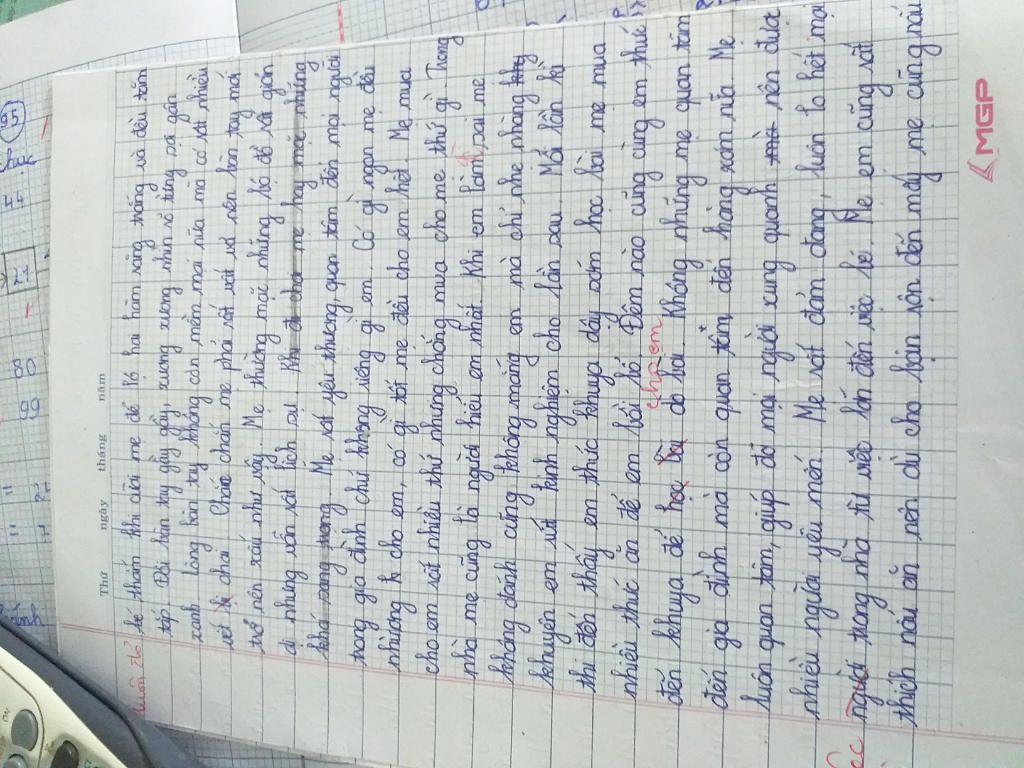 Thứ ngày tháng năm
luôn đỏ
bé thắm khi cười mẹ để lộ hai hàm răng trắng và đều tăm
tắp. Đôi bàn tay gầy gầy, xương xương nhìn rõ từng sợi gân
xanh lòng bàn tay không còn mềm mại nữa mà có rất nhiều
vết chai. Chắc chắn mẹ phải rất vất vả nên bàn tay mới
trở nên xấu như vậy. Mẹ thường mặc những bộ đồ rất giản
dị nhưng vẫn rất lịch sự. Khi đi chơi mẹ hay mặc những
khá sang trọng. Mẹ rất yêu thương, quan tâm đến mọi người
trong gia đình chứ không riêng gì em. Có gì ngon mẹ đều
nhường h cho em, có gì tốt mẹ đều cho em hết. Mẹ mua
cho em rất nhiều thứ nhưng chẳng mua cho mẹ thứ gì. Trong
nhà mẹ cũng là người hiểu em nhất. Khi em làm sai mẹ
không đánh cũng không mắng em mà chỉ nhẹ nhàng
khuyên em rút kinh nghiệm cho lần sau. Mỗi lần kì
thi đến thấy em thức khuya dậy sớm học bài mẹ mua
nhiều thức ăn để em bồi bổ. Đêm nào cũng cùng em thức
cho em
đến khuya để học bài dò bài. Không những mẹ quan tâm
đến gia đình mà còn quan tâm đến hàng xóm nữa. Mẹ
luôn quan tâm, giúp đỡ mọi người xung quanh mà nên được
nhiều người yêu mến. Mẹ rất đảm đang, luôn lo hết mọi
việc
người trong nhà từ việc lớn đến việc bé. Mẹ em cũng rất
thích nấu ăn nên dù cho bận rộn đến mấy mẹ cũng nấu
MGP
95
44
22
80
99
ON